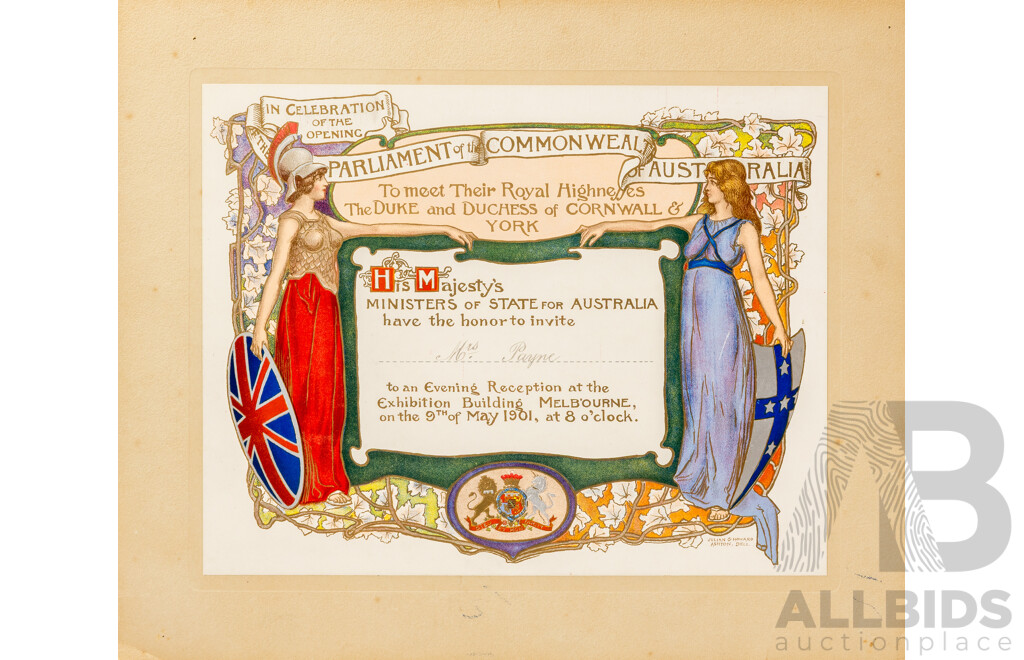 IN CELEBRATION
OF THE
OPENING
OF THE
PARLIAMENT of the COMMONWEALTH
OF AUSTRALIA
To meet Their Royal Highnesses
The DUKE and DUCHESS of CORNWALL &
YORK
His Majesty's
MINISTERS OF STATE FOR AUSTRALIA
have the honor to invite
Mrs Payne
to an Evening Reception at the
Exhibition Building MELBOURNE,
on the 9TH of May 1901, at 8 o'clock.
AB
ALLBIDS
auctionplace